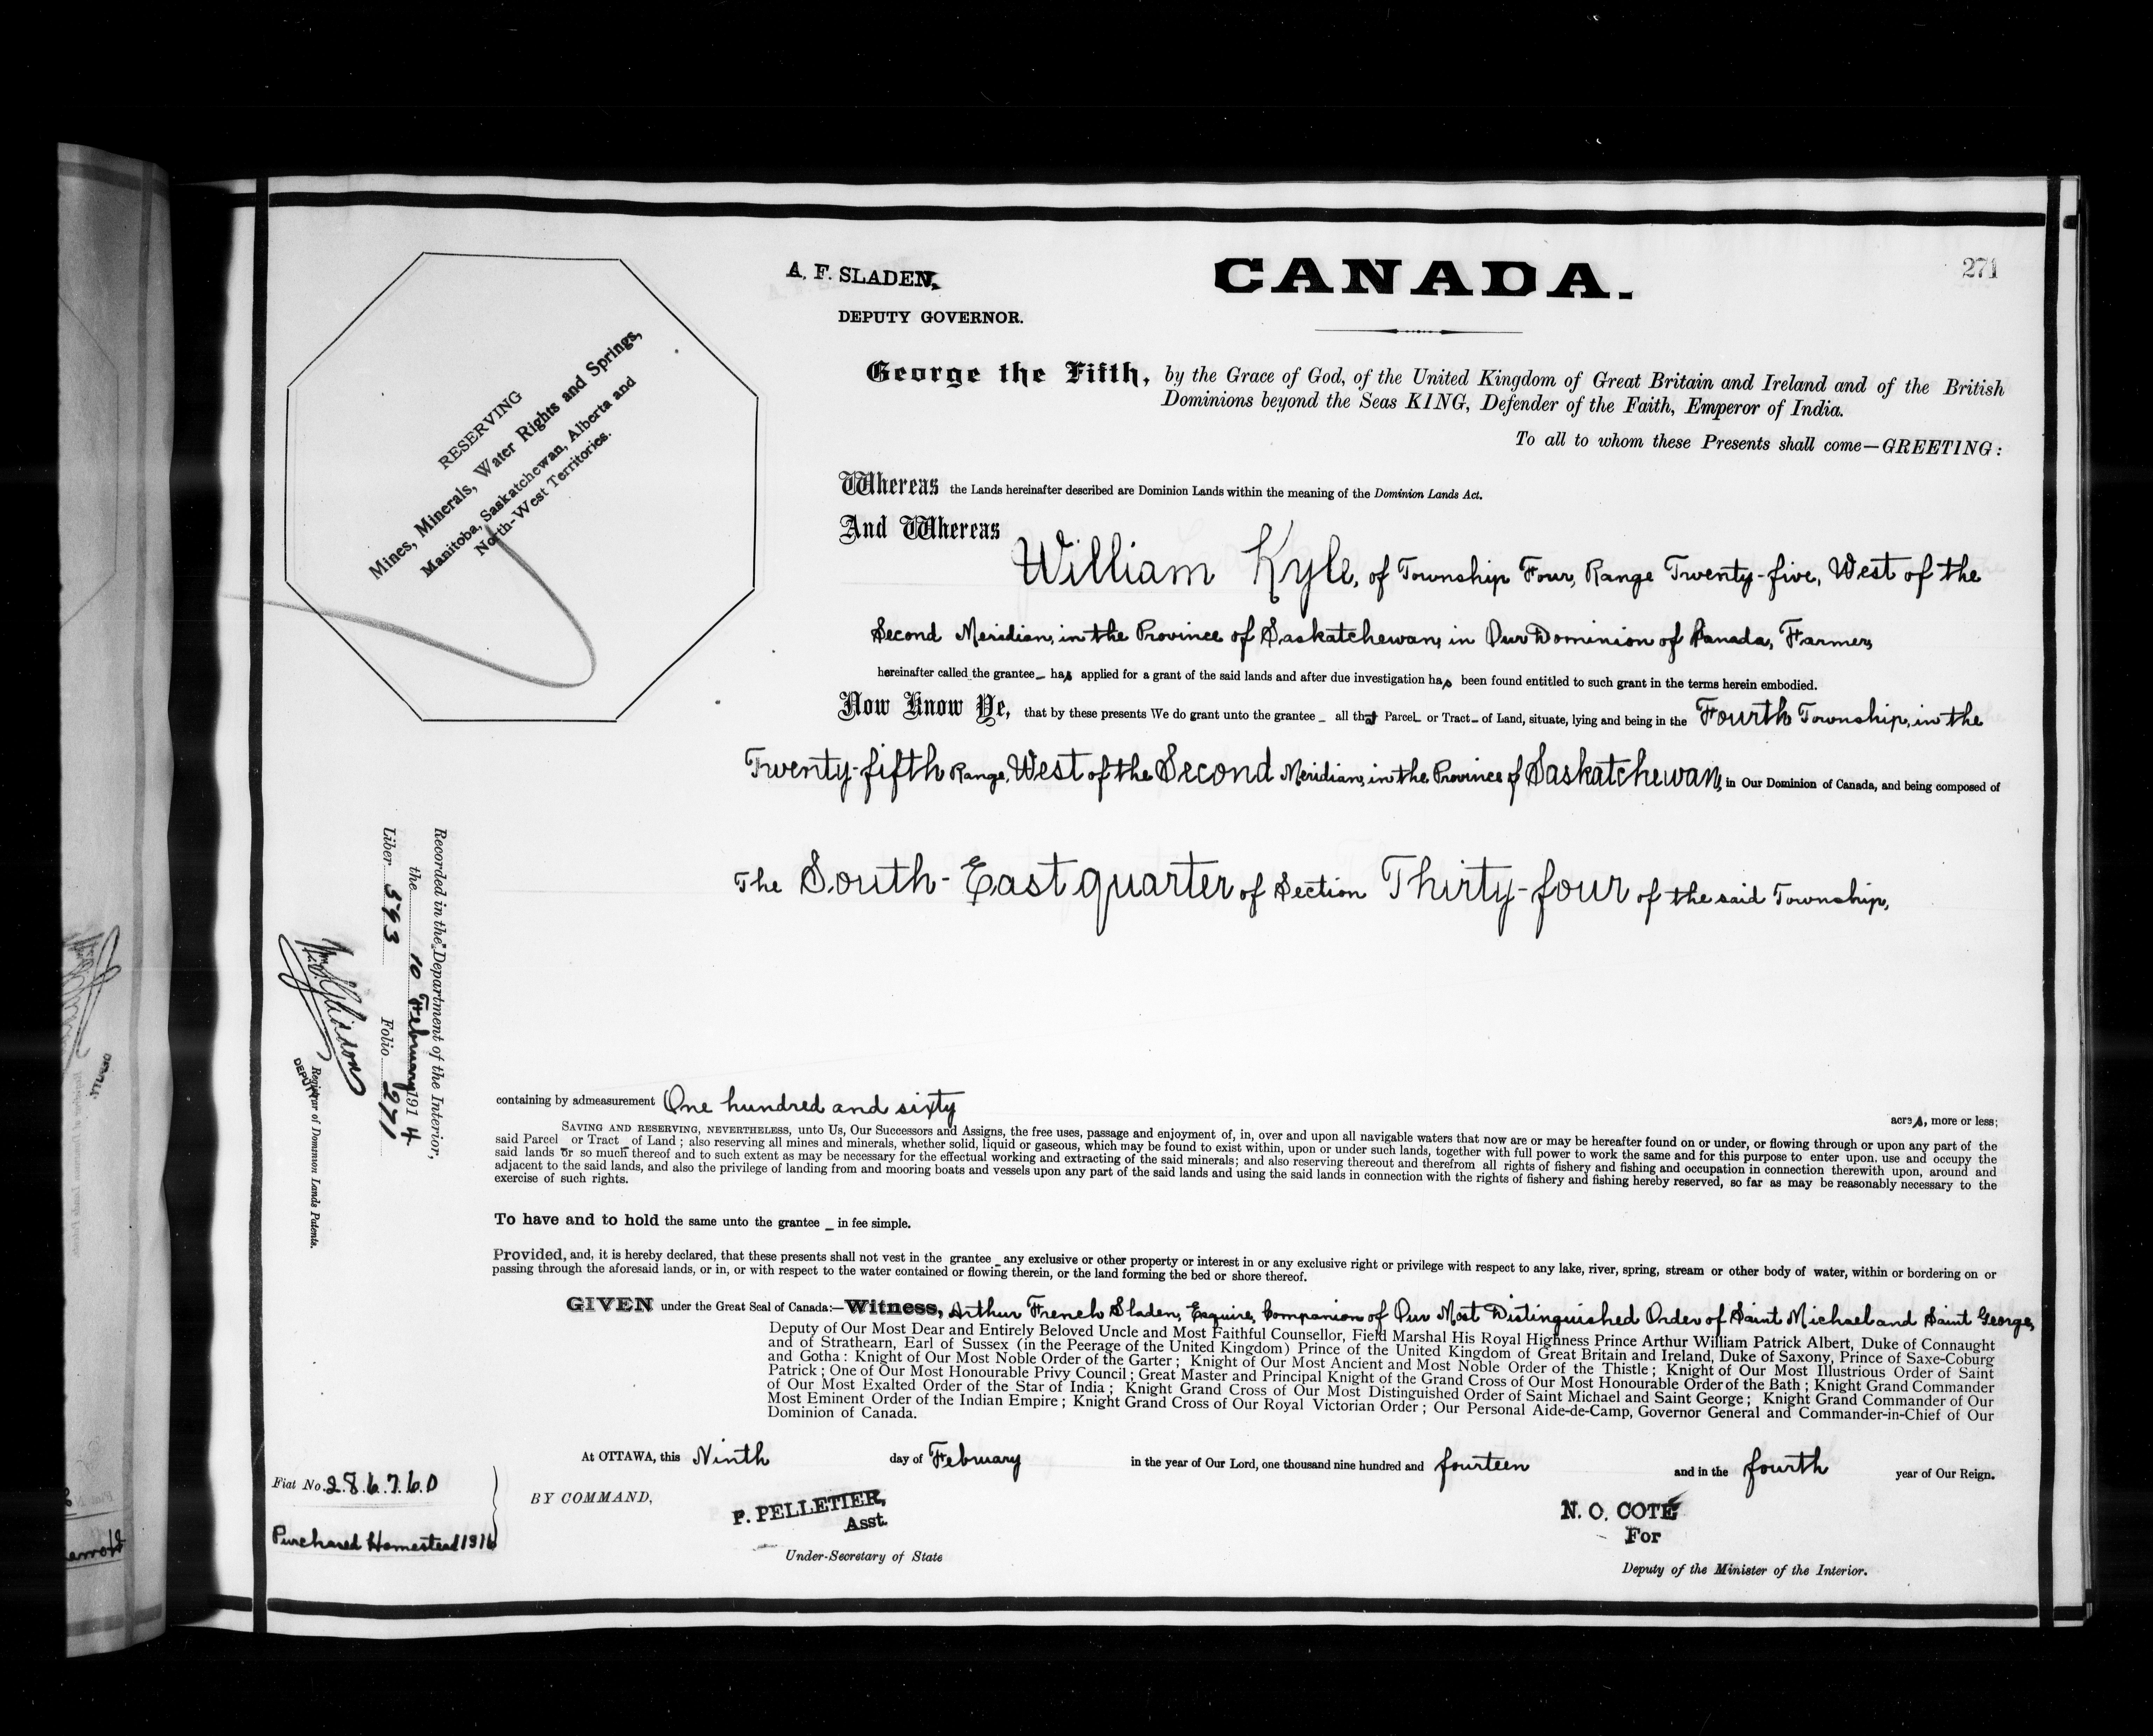 271
A. F. SLADEN,
DEPUTY GOVERNOR.
CANADA.
RESERVING
Mines, Minerals, Water Rights and Springs,
Manitoba, Saskatchewan, Alberta and
North-West Territories.
George the Fifth, by the Grace of God, of the United Kingdom of Great Britain and Ireland and of the British
Dominions beyond the Seas KING, Defender of the Faith, Emperor of India.
To all to whom these Presents shall come—GREETING:
Whereas the Lands hereinafter described are Dominion Lands within the meaning of the Dominion Lands Act.
And Whereas
William Kyle, of Township Four, Range Twenty-five, West of the
Second Meridian, in the Province of Saskatchewan, in Our Dominion of Canada, Farmer,
hereinafter called the grantee_ has applied for a grant of the said lands and after due investigation has been found entitled to such grant in the terms herein embodied.
Now Know Ye, that by these presents We do grant unto the grantee _ all that Parcel_ or Tract_ of Land, situate, lying and being in the Fourth Township, in the
Twenty-fifth Range, West of the Second Meridian, in the Province of Saskatchewan, in Our Dominion of Canada, and being composed of
The South-East quarter of Section Thirty-four of the said Township,
Recorded in the Department of the Interior,
the 10 February 1914
Liber 593 Folio 271
DEPUTY
Registrar of Dominion Lands Patents.
containing by admeasurement One hundred and sixty acres, more or less;
SAVING AND RESERVING, NEVERTHELESS, unto Us, Our Successors and Assigns, the free uses, passage and enjoyment of, in, over and upon all navigable waters that now are or may be hereafter found on or under, or flowing through or upon any part of the
said Parcel_ or Tract_ of Land; also reserving all mines and minerals, whether solid, liquid or gaseous, which may be found to exist within, upon or under such lands, together with full power to work the same and for this purpose to enter upon, use and occupy the
said lands or so much thereof and to such extent as may be necessary for the effectual working and extracting of the said minerals; and also reserving thereout and therefrom all rights of fishery and fishing and occupation in connection therewith upon, around and
adjacent to the said lands, and also the privilege of landing from and mooring boats and vessels upon any part of the said lands and using the said lands in connection with the rights of fishery and fishing hereby reserved, so far as may be reasonably necessary to the
exercise of such rights.
To have and to hold the same unto the grantee _ in fee simple.
Provided, and, it is hereby declared, that these presents shall not vest in the grantee _ any exclusive or other property or interest in or any exclusive right or privilege with respect to any lake, river, spring, stream or other body of water, within or bordering on or
passing through the aforesaid lands, or in, or with respect to the water contained or flowing therein, or the land forming the bed or shore thereof.
GIVEN under the Great Seal of Canada:—Witness, Arthur French Sladen, Esquire, Companion of Our Most Distinguished Order of Saint Michael and Saint George,
Deputy of Our Most Dear and Entirely Beloved Uncle and Most Faithful Counsellor, Field Marshal His Royal Highness Prince Arthur William Patrick Albert, Duke of Connaught
and of Strathearn, Earl of Sussex (in the Peerage of the United Kingdom) Prince of the United Kingdom of Great Britain and Ireland, Duke of Saxony, Prince of Saxe-Coburg
and Gotha: Knight of Our Most Noble Order of the Garter; Knight of Our Most Ancient and Most Noble Order of the Thistle; Knight of Our Most Illustrious Order of Saint
Patrick; One of Our Most Honourable Privy Council; Great Master and Principal Knight of the Grand Cross of Our Most Honourable Order of the Bath; Knight Grand Commander
of Our Most Exalted Order of the Star of India; Knight Grand Cross of Our Most Distinguished Order of Saint Michael and Saint George; Knight Grand Commander of Our
Most Eminent Order of the Indian Empire; Knight Grand Cross of Our Royal Victorian Order; Our Personal Aide-de-Camp, Governor General and Commander-in-Chief of Our
Dominion of Canada.
At OTTAWA, this Ninth day of February in the year of Our Lord, one thousand nine hundred and fourteen and in the fourth year of Our Reign.
Fiat No. 286760
Purchased Homestead
BY COMMAND,
P. PELLETIER,
Asst.
Under-Secretary of State
N. O. COTÉ
For
Deputy of the Minister of the Interior.